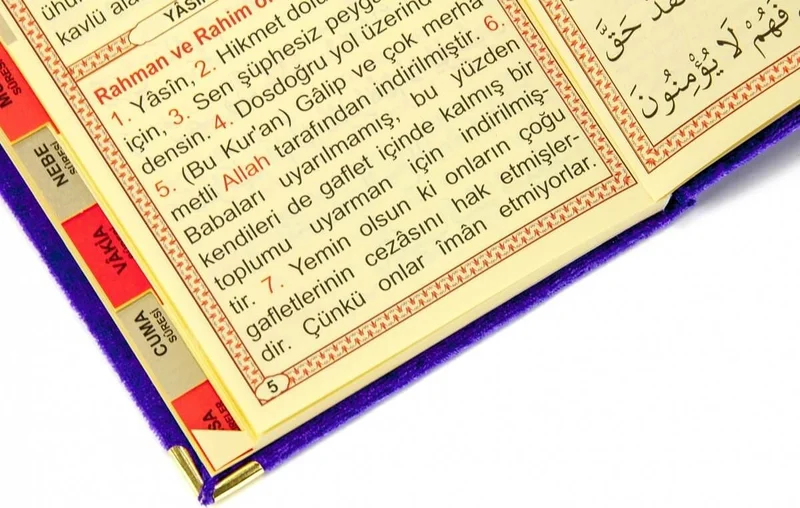 ühü
kavlü ala
YÂSİN
Rahman ve Rahim o
1. Yâsîn, 2. Hikmet dolu
için, 3. Sen şüphesiz peyge
densin. 4. Dosdoğru yol üzerind
5. (Bu Kur'an) Gâlip ve çok merha
metli Allah tarafından indirilmiştir. 6.
Babaları uyarılmamış, bu yüzden
kendileri de gaflet içinde kalmış bir
toplumu uyarman için indirilmiş-
tir. 7. Yemin olsun ki onların çoğu
gafletlerinin cezâsını hak etmişler-
dir. Çünkü onlar îmân etmiyorlar.
5
حَقَّ
فَهُمْ لَا يُؤْمِنُونَ
SÛRESİ
NEBE
SÛRESİ
VÂKIA
CUMA
SÛRESİ